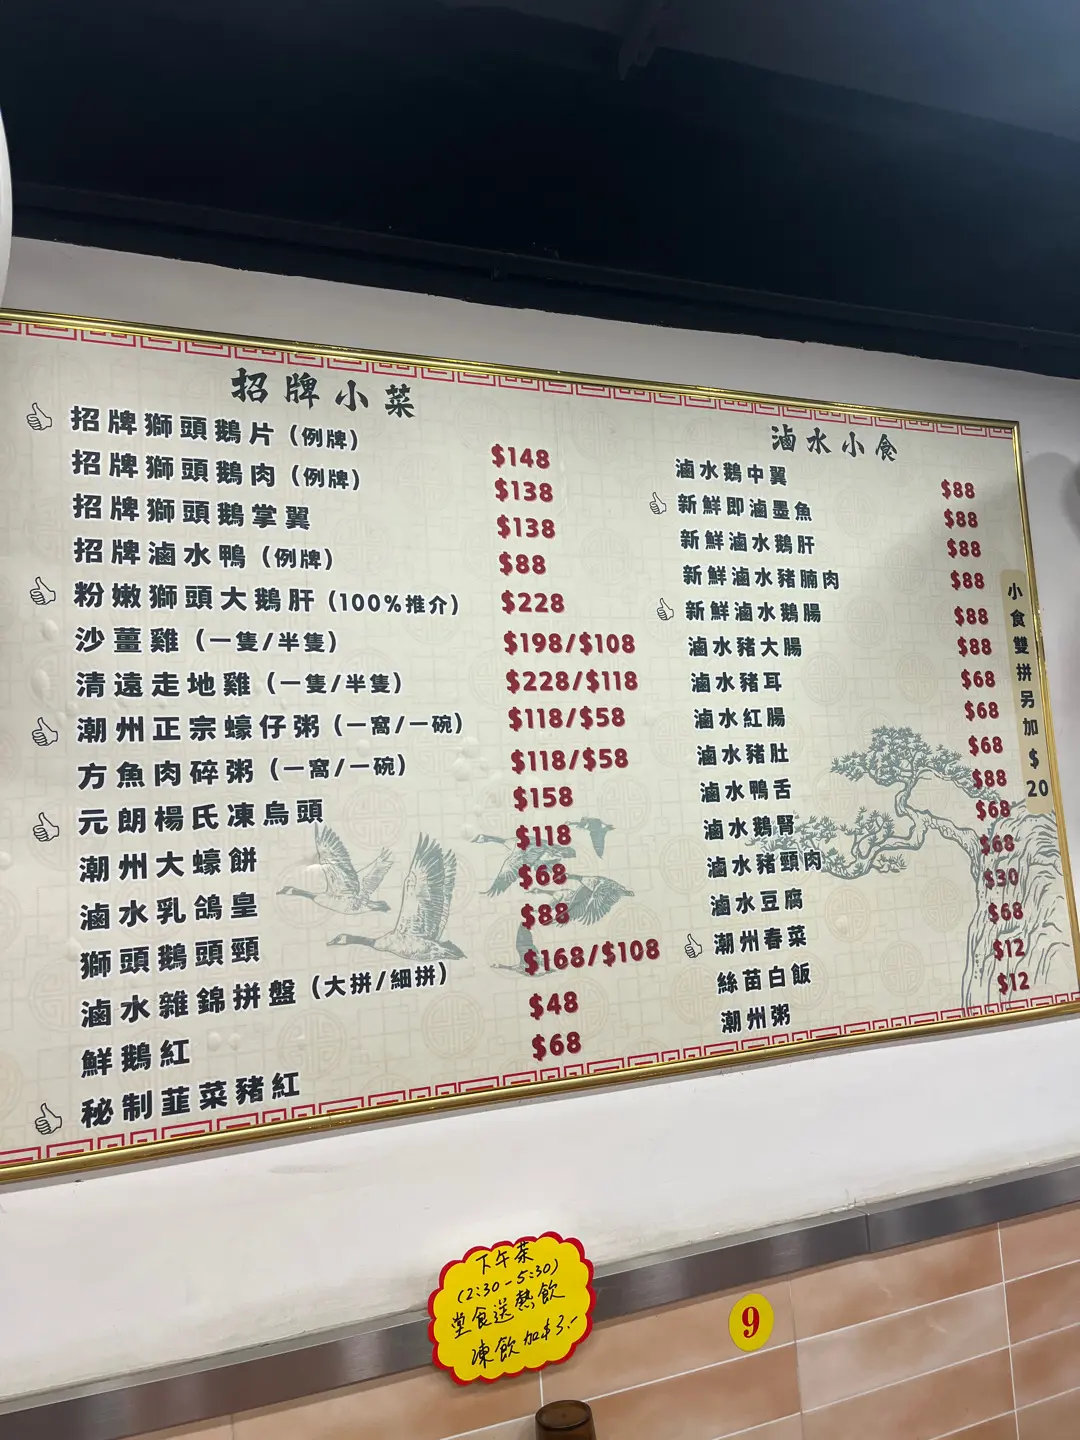 招牌小菜
招牌獅頭鵝片（例牌） $148
招牌獅頭鵝肉（例牌） $138
招牌獅頭鵝掌翼 $138
招牌滷水鴨（例牌） $88
粉嫩獅頭大鵝肝（100%推介） $228
沙薑雞（一隻/半隻） $198/$108
清遠走地雞（一隻/半隻） $228/$118
潮州正宗蠔仔粥（一窩/一碗） $118/$58
方魚肉碎粥（一窩/一碗） $118/$58
元朗楊氏凍烏頭 $158
潮州大蠔餅 $118
滷水乳鴿皇 $68
獅頭鵝頭頸 $88
滷水雜錦拼盤（大拼/細拼） $168/$108
鮮鵝紅 $48
秘制韮菜豬紅 $68
滷水小食
滷水鵝中翼 $88
新鮮即滷墨魚 $88
新鮮滷水鵝肝 $88
新鮮滷水豬腩肉 $88
新鮮滷水鵝腸 $88
滷水豬大腸 $88
滷水豬耳 $68
滷水紅腸 $68
滷水豬肚 $68
滷水鴨舌 $88
滷水鵝腎 $68
滷水豬頸肉 $68
滷水豆腐 $30
潮州春菜 $68
絲苗白飯 $12
潮州粥 $12
小食雙拼另加$20
下午茶
(2:30-5:30)
堂食送熱飲
凍飲加$3.-
9